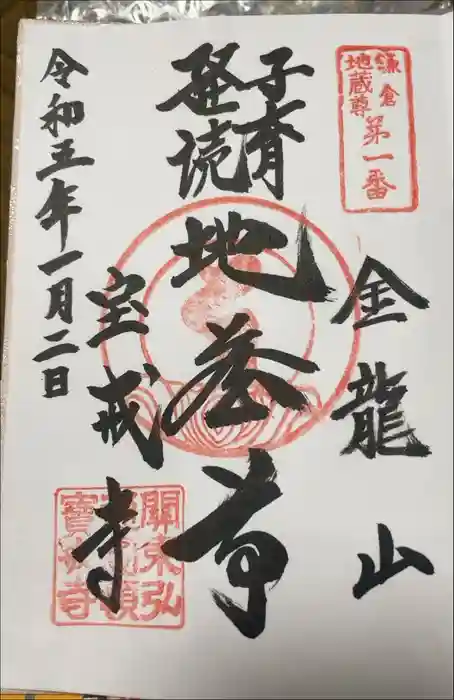 鎌倉
地蔵尊
第一番
金龍山
子育
経読
地蔵尊
宝戒寺
令和五年一月二日
關東弘
寶戒寺